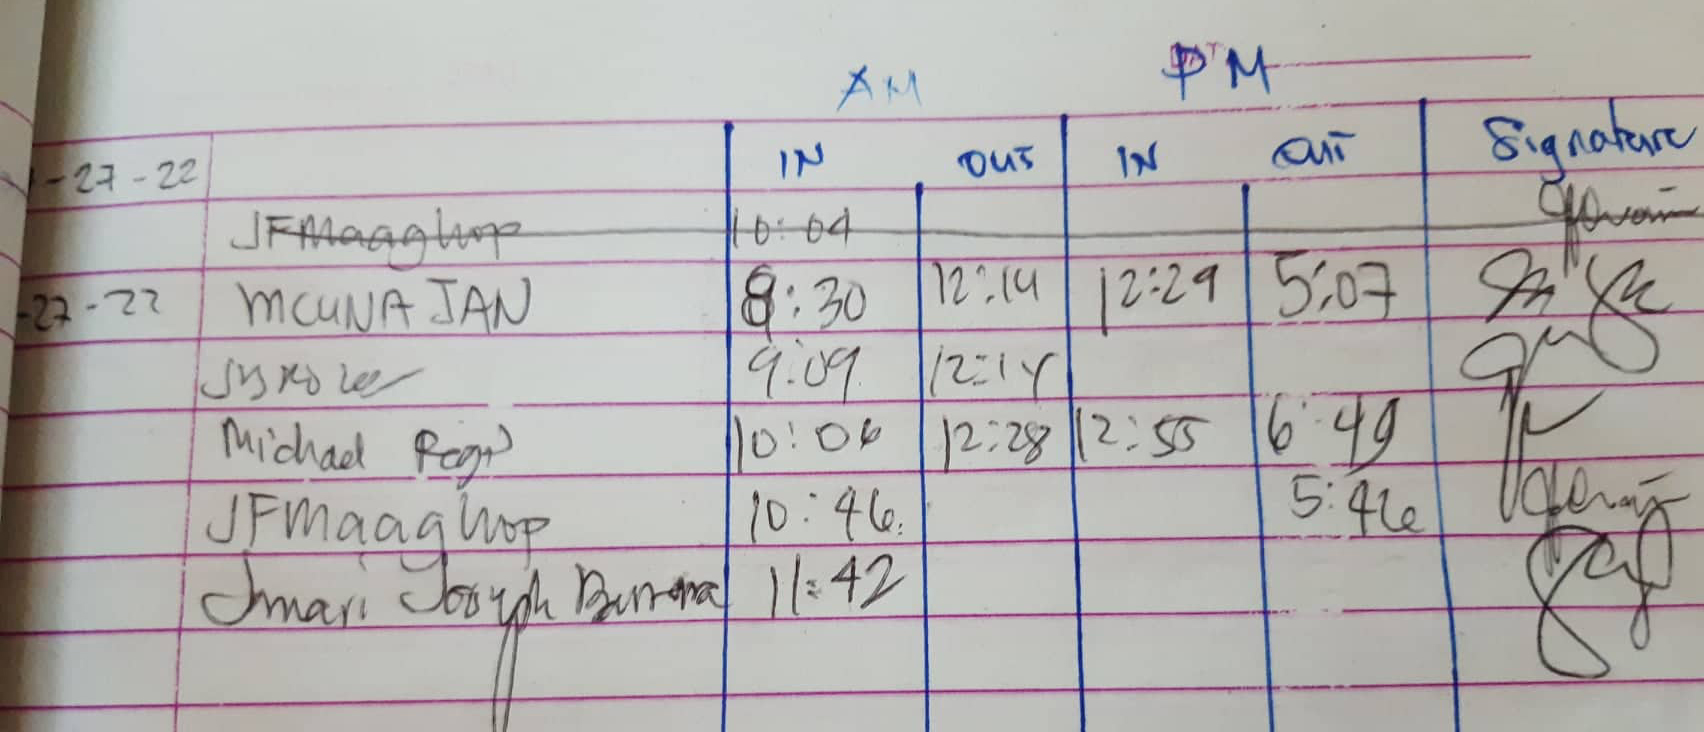 AM PM
IN OUT IN OUT Signature
-27-22
JFMaaghop 10:04
-27-22 MCUNA JAN 8:30 12:14 12:29 5:07
9:09 12:14
Michael 10:06 12:28 12:55 6:49
JFMaaghop 10:46 5:46
Jmari Joseph 11:42